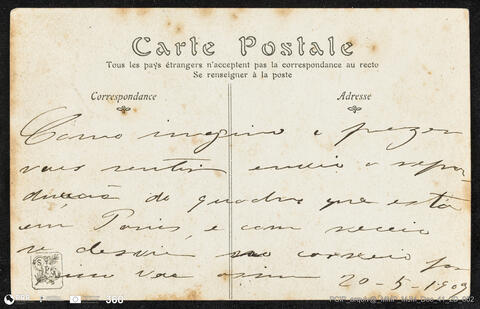 Carte Postale
Tous les pays étrangers n'acceptent pas la correspondance au recto
Se renseigner à la poste
Correspondance
Adresse
Como imagino o prazer
vais sentir envio a repro-
dução do quadro que está
em Paris, e com receio
se desvie no correio
vae assim 20-5-1909